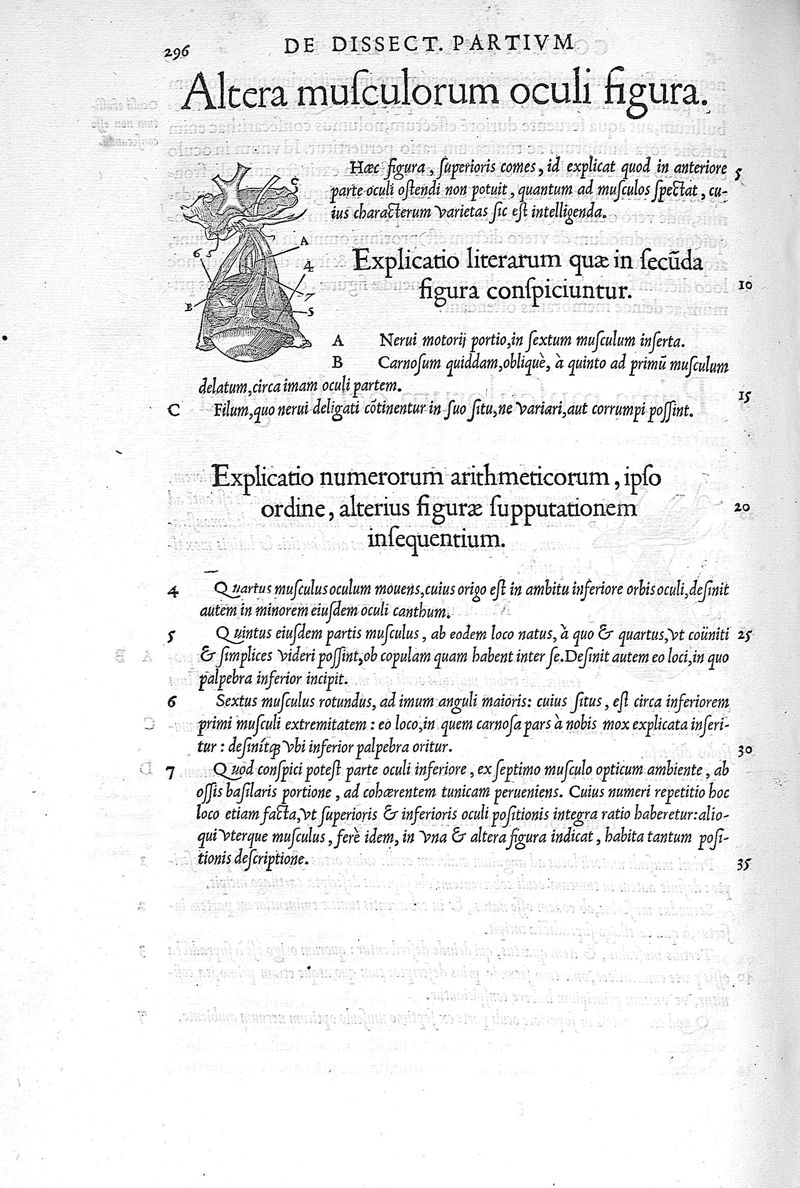 296
DE DISSECT. PARTIVM
Altera muſculorum oculi figura.
Hæc figura, ſuperioris comes, id explicat quod in anteriore 5
parte oculi oſtendi non potuit, quantum ad muſculos ſpectat, cu-
ius characterum varietas ſic eſt intelligenda.
S
6
A
4
7
B
5
Explicatio literarum quæ in ſecũda
figura conſpiciuntur. 10
A Nerui motorij portio, in ſextum muſculum inſerta.
B Carnoſum quiddam, obliquè, à quinto ad primũ muſculum
delatum, circa imam oculi partem.
15
C Filum, quo nerui deligati cõtinentur in ſuo ſitu, ne variari, aut corrumpi poſſint.
Explicatio numerorum arithmeticorum, ipſo
ordine, alterius figuræ ſupputationem 20
inſequentium.
4 Quartus muſculus oculum mouens, cuius origo eſt in ambitu inferiore orbis oculi, deſinit
autem in minorem eiuſdem oculi canthum.
5 Quintus eiuſdem partis muſculus, ab eodem loco natus, à quo & quartus, vt coüniti 25
& ſimplices videri poſſint, ob copulam quam habent inter ſe. Deſinit autem eo loci, in quo
palpebra inferior incipit.
6 Sextus muſculus rotundus, ad imum anguli maioris: cuius ſitus, eſt circa inferiorem
primi muſculi extremitatem: eo loco, in quem carnoſa pars à nobis mox explicata inſeri-
tur: deſinitq́; vbi inferior palpebra oritur. 30
7 Quod conſpici poteſt parte oculi inferiore, ex ſeptimo muſculo opticum ambiente, ab
oſſis baſilaris portione, ad cohærentem tunicam perueniens. Cuius numeri repetitio hoc
loco etiam facta, vt ſuperioris & inferioris oculi poſitionis integra ratio haberetur: alio-
qui vterque muſculus, ferè idem, in vna & altera figura indicat, habita tantum poſi-
tionis deſcriptione. 35